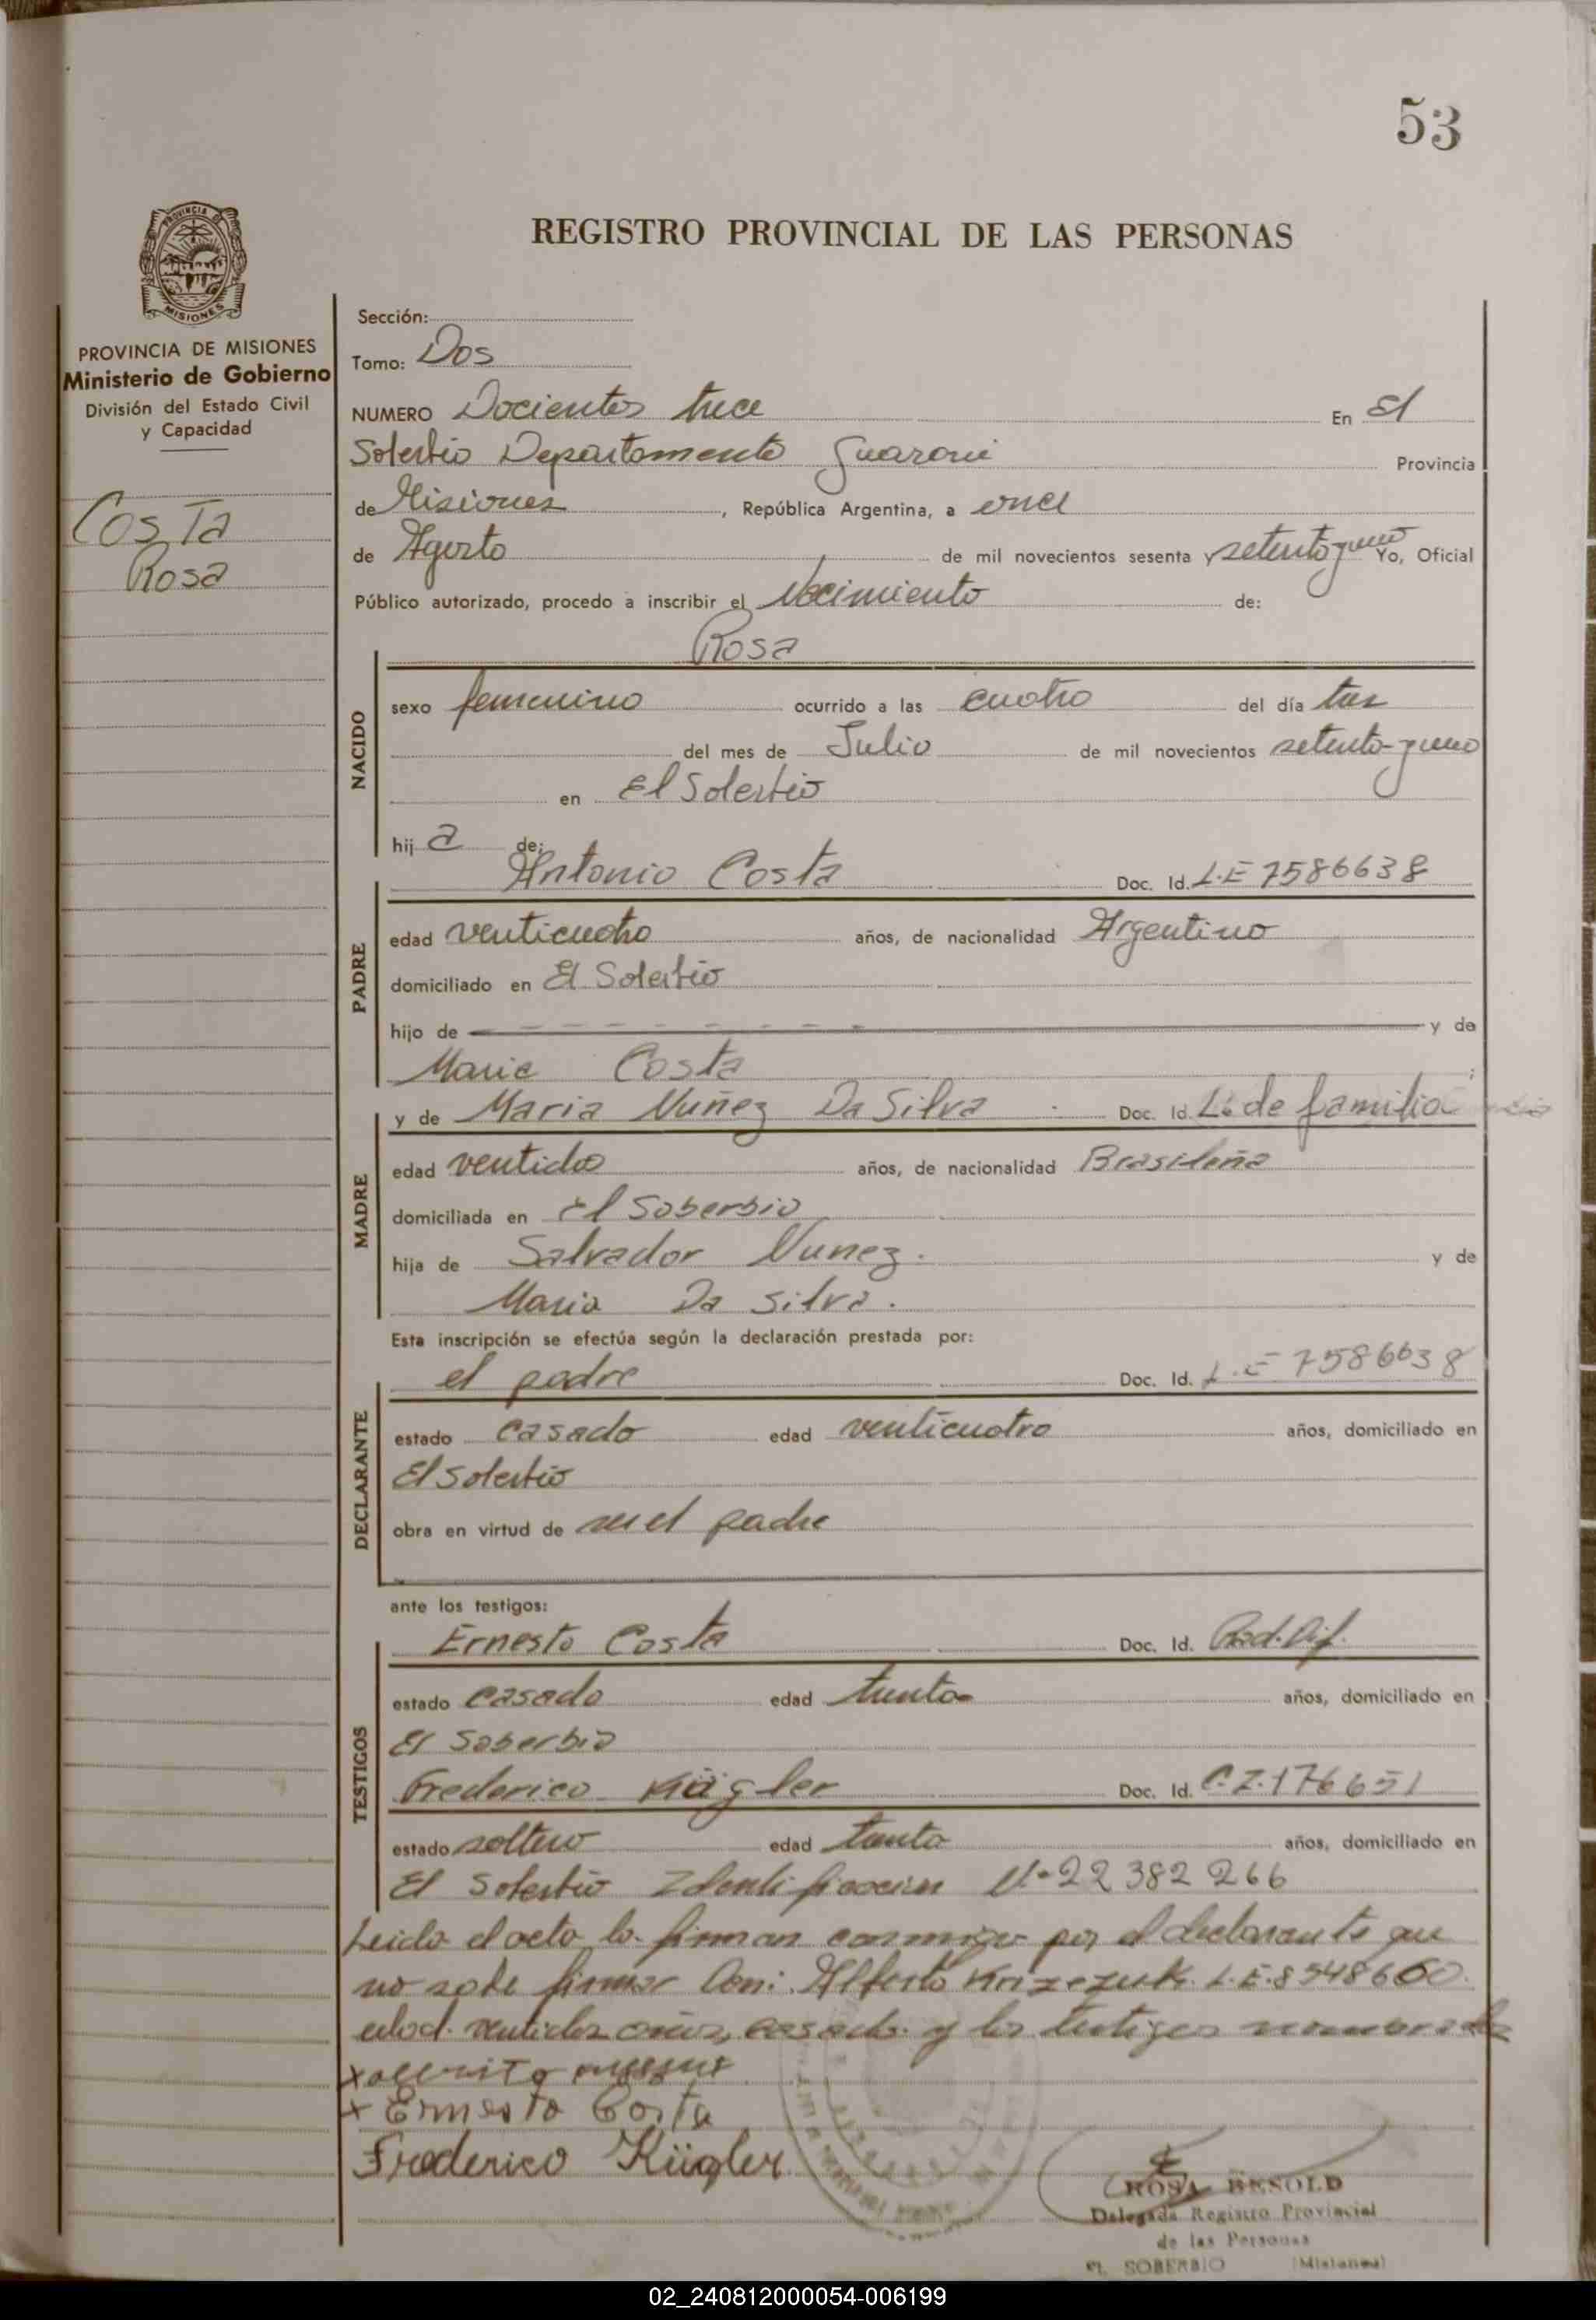 53
REGISTRO PROVINCIAL DE LAS PERSONAS
PROVINCIA DE MISIONES
PROVINCIA DE MISIONES
Ministerio de Gobierno
División del Estado Civil
y Capacidad
Costa
Rosa
Sección:
Tomo: Dos
NUMERO Docientos trece En El
Soberbio Departamento Guarani Provincia
de Misiones, República Argentina, a once
de Agosto de mil novecientos sesenta y setenta y uno Yo, Oficial
Público autorizado, procedo a inscribir el Nacimiento de:
Rosa
NACIDO
sexo femenino ocurrido a las cuatro del día tres
del mes de Julio de mil novecientos setenta y uno
en El Soberbio
hij a de:
Antonio Costa Doc. Id. L.E 7586638
PADRE
edad venticuatro años, de nacionalidad Argentino
domiciliado en El Soberbio
hijo de y de
Maria Costa ;
y de Maria Nuñez Da Silva Doc. Id. L. de familia
MADRE
edad ventidos años, de nacionalidad Brasileña
domiciliada en El Soberbio
hija de Salvador Nunez. y de
Maria Da Silva.
Esta inscripción se efectúa según la declaración prestada por:
el padre Doc. Id. L.E 7586638
DECLARANTE
estado casado edad venticuatro años, domiciliado en
El Soberbio
obra en virtud de ser el padre
ante los testigos:
Ernesto Costa Doc. Id.
TESTIGOS
estado casado edad treinta años, domiciliado en
El Soberbio
Frederico Kügler Doc. Id. C.I.176651
estado soltero edad treinta años, domiciliado en
El Soberbio Identificacion N° 22382266
Leida el acta la firman conmigo por el declarante que
no sabe firmar Alberto L.E.8548660.
edad. ventidos años, casado. y los testigos nombrados
x
x Ernesto Costa
Frederico Kügler
ROSA BESOLD
Delegada Registro Provincial
de las Personas
EL SOBERBIO (Misiones)
02_240812000054-006199